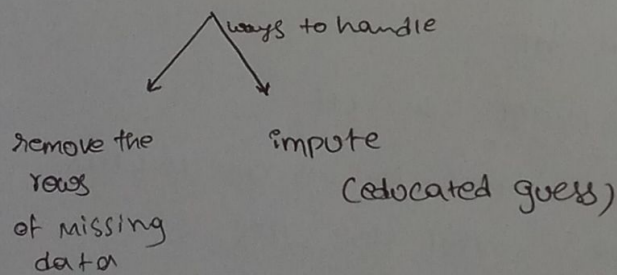 ways to handle
remove the
rows
of missing
data
impute
(educated guess)